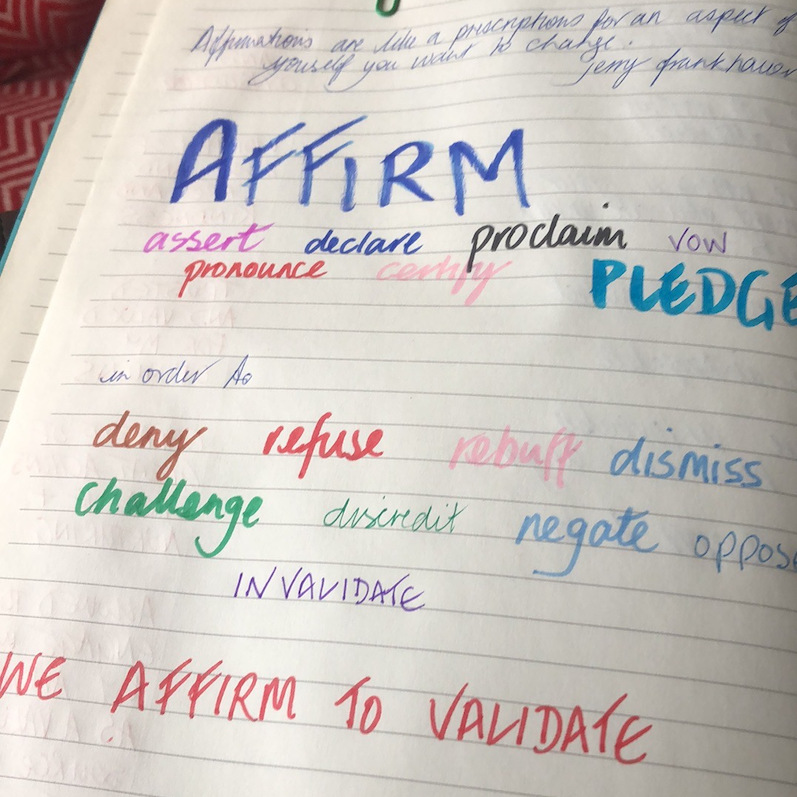 Affirmations are like a prescriptions for an aspect of
yourself you want to change.
Jerry Frankhauser
AFFIRM
assert declare proclaim vow
pronounce certify PLEDGE
in order to
deny refuse rebuff dismiss
challenge discredit negate oppose
INVALIDATE
WE AFFIRM TO VALIDATE